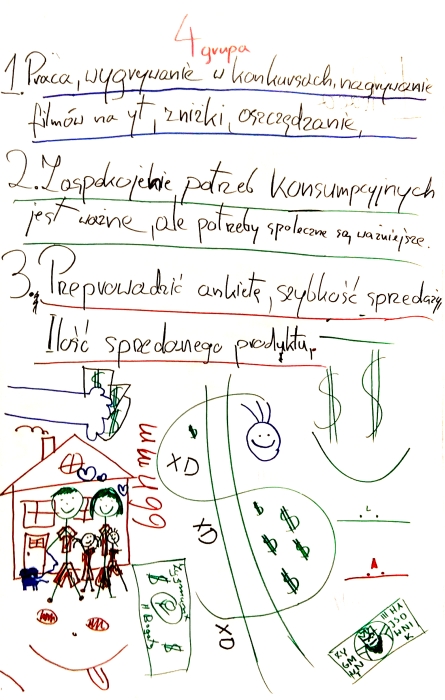 4 grupa
1. Praca, wygrywanie w konkursach, nagrywanie
filmów na yt, zniżki, oszczędzanie,
2. Zaspokojenie potrzeb konsumpcyjnych
jest ważne, ale potrzeby społeczne są ważniejsze.
3. Przeprowadzić ankietę, szybkość sprzedaży,
Ilość sprzedanego produktu,
$
$ $
$
XD
XD
XD
$
$
$
$
$
L
A
$ $